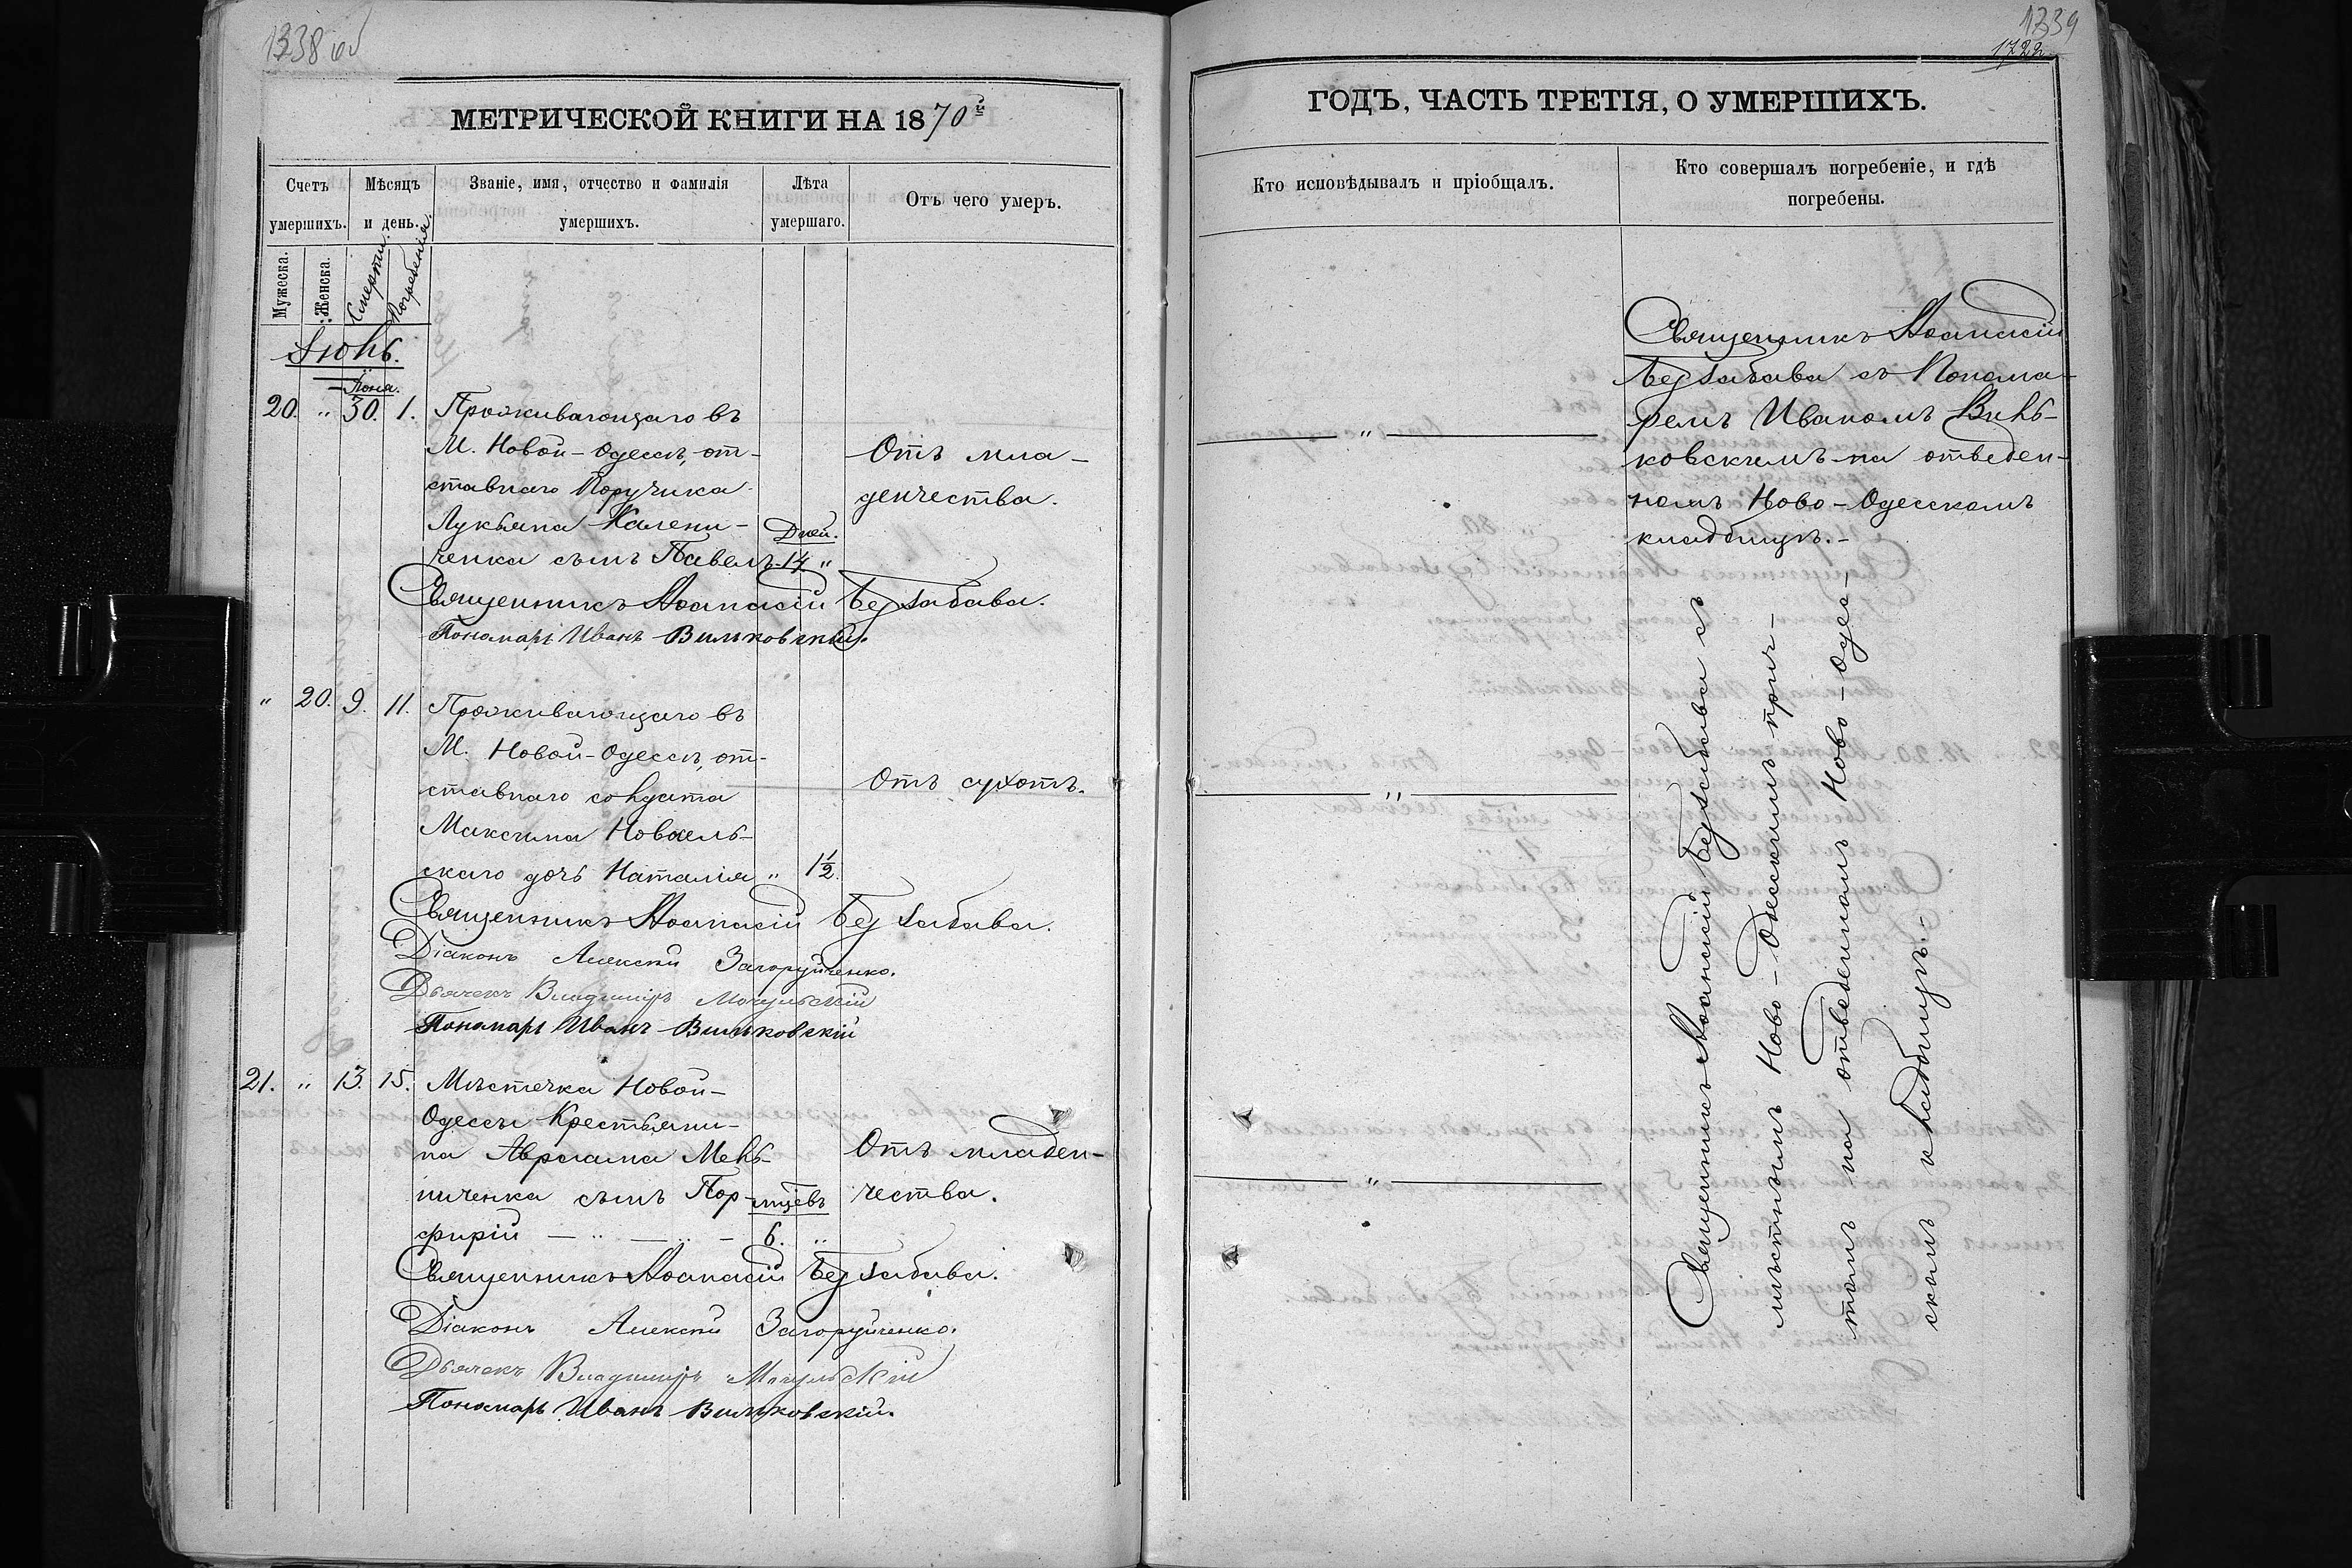 1338 об
МЕТРИЧЕСКОЙ КНИГИ НА 1870й
Счетъ умершихъ.
Мѣсяцъ и день.
Званіе, имя, отчество и фамилія умершихъ.
Лѣта умершаго.
Отъ чего умеръ.
Мужеска.
Женска.
Смерти.
Погребенія.
Іюнь.
20. " 30. 1. Проживающаго въ
М. Новой-Одессѣ, от-
ставнаго Поручика
Лукьяна Калени-
ченка сынъ Павелъ
Дней.
14. "
Отъ мла-
денчества.
Священникъ Аѳанасій Беззабава.
Пономарь Иванъ Вильковскій.
" 20. 9. 11. Проживающаго въ
М. Новой-Одессѣ, от-
ставнаго солдата
Максима Новаель-
скаго дочь Наталія " 1½.
Отъ сухотъ.
Священникъ Аѳанасій Беззабава.
Діаконъ Алексѣй Загоруйченко.
Дьячекъ Владиміръ Мочульскій
Пономарь Иванъ Вильковскій
21. " 13. 15. Мѣстечка Новой-
Одессы Крестьяни-
на Авраама Мель-
ниченка сынъ Пор-
фирій — " — " —
мцевъ
6. "
Отъ младен-
чества.
Священникъ Аѳанасій Беззабава.
Діаконъ Алексѣй Загоруйченко.
Дьячекъ Владиміръ Мочульскій
Пономарь Иванъ Вильковскій.
1339
1722
ГОДЪ, ЧАСТЬ ТРЕТІЯ, О УМЕРШИХЪ.
Кто исповѣдывалъ и пріобщалъ.
Кто совершалъ погребеніе, и гдѣ
погребены.
— " —
Священникъ Аѳанасій
Беззабава съ Понома-
ремъ Иваномъ Виль-
ковскимъ на отведен-
номъ Ново-Одесскомъ
кладбищѣ.-
— " —
— " —
Священникъ Аѳанасій Беззабава съ
мѣстнымъ Ново-Одесскимъ прич-
томъ на отведенномъ Ново-Одес-
скомъ кладбищѣ.-